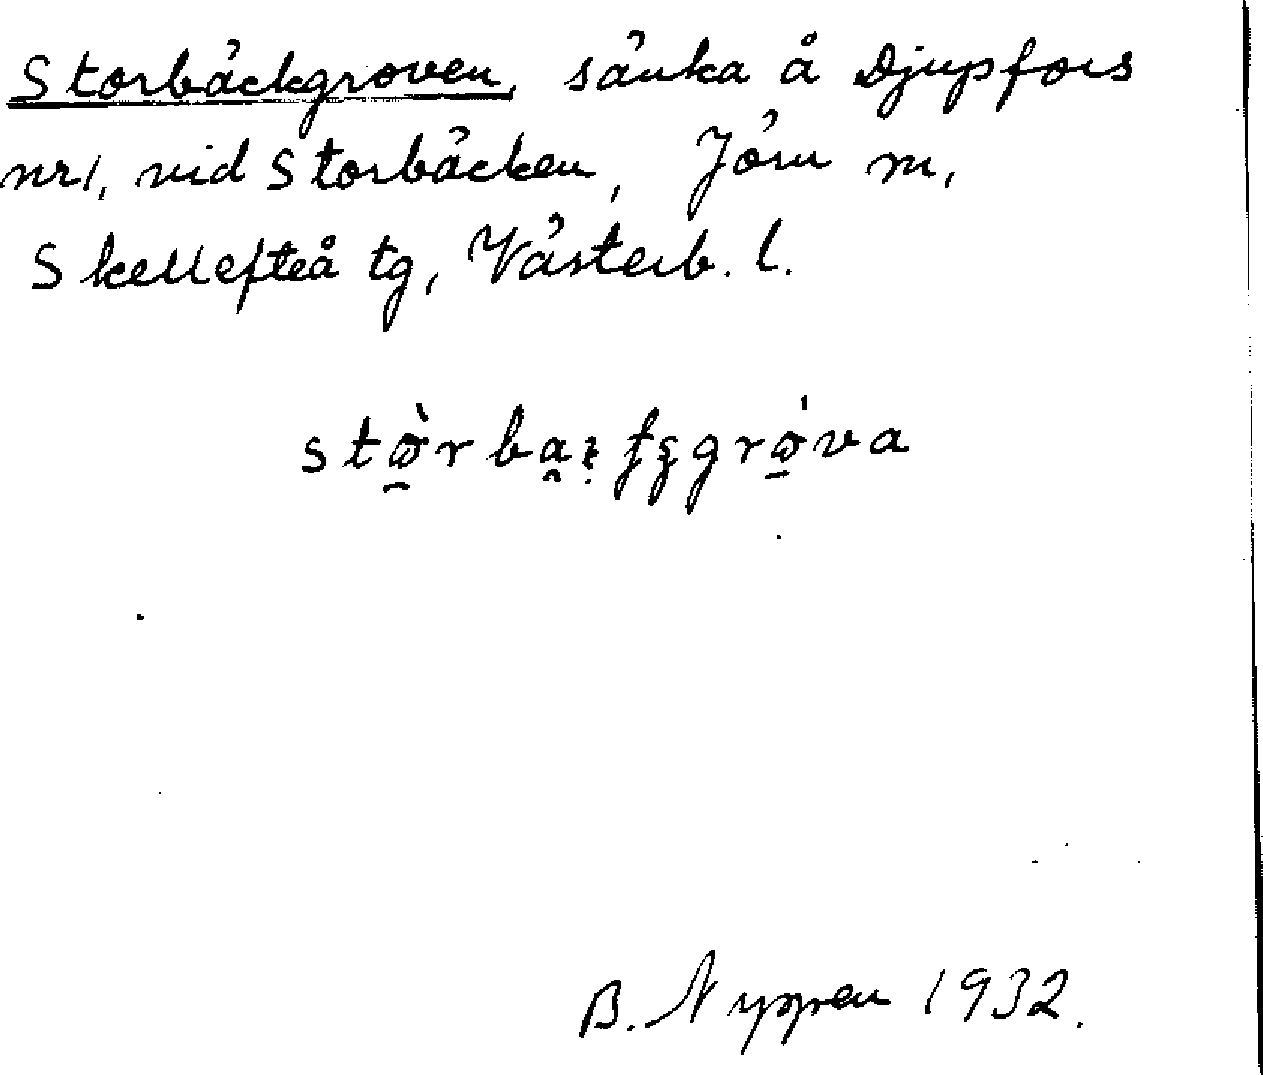 Storbäckgroven, sänka å Djupfors
nr 1, vid Storbäcken, Jörn sn,
Skellefteå tg, Västerb. l.
B. Nyppen 1932.